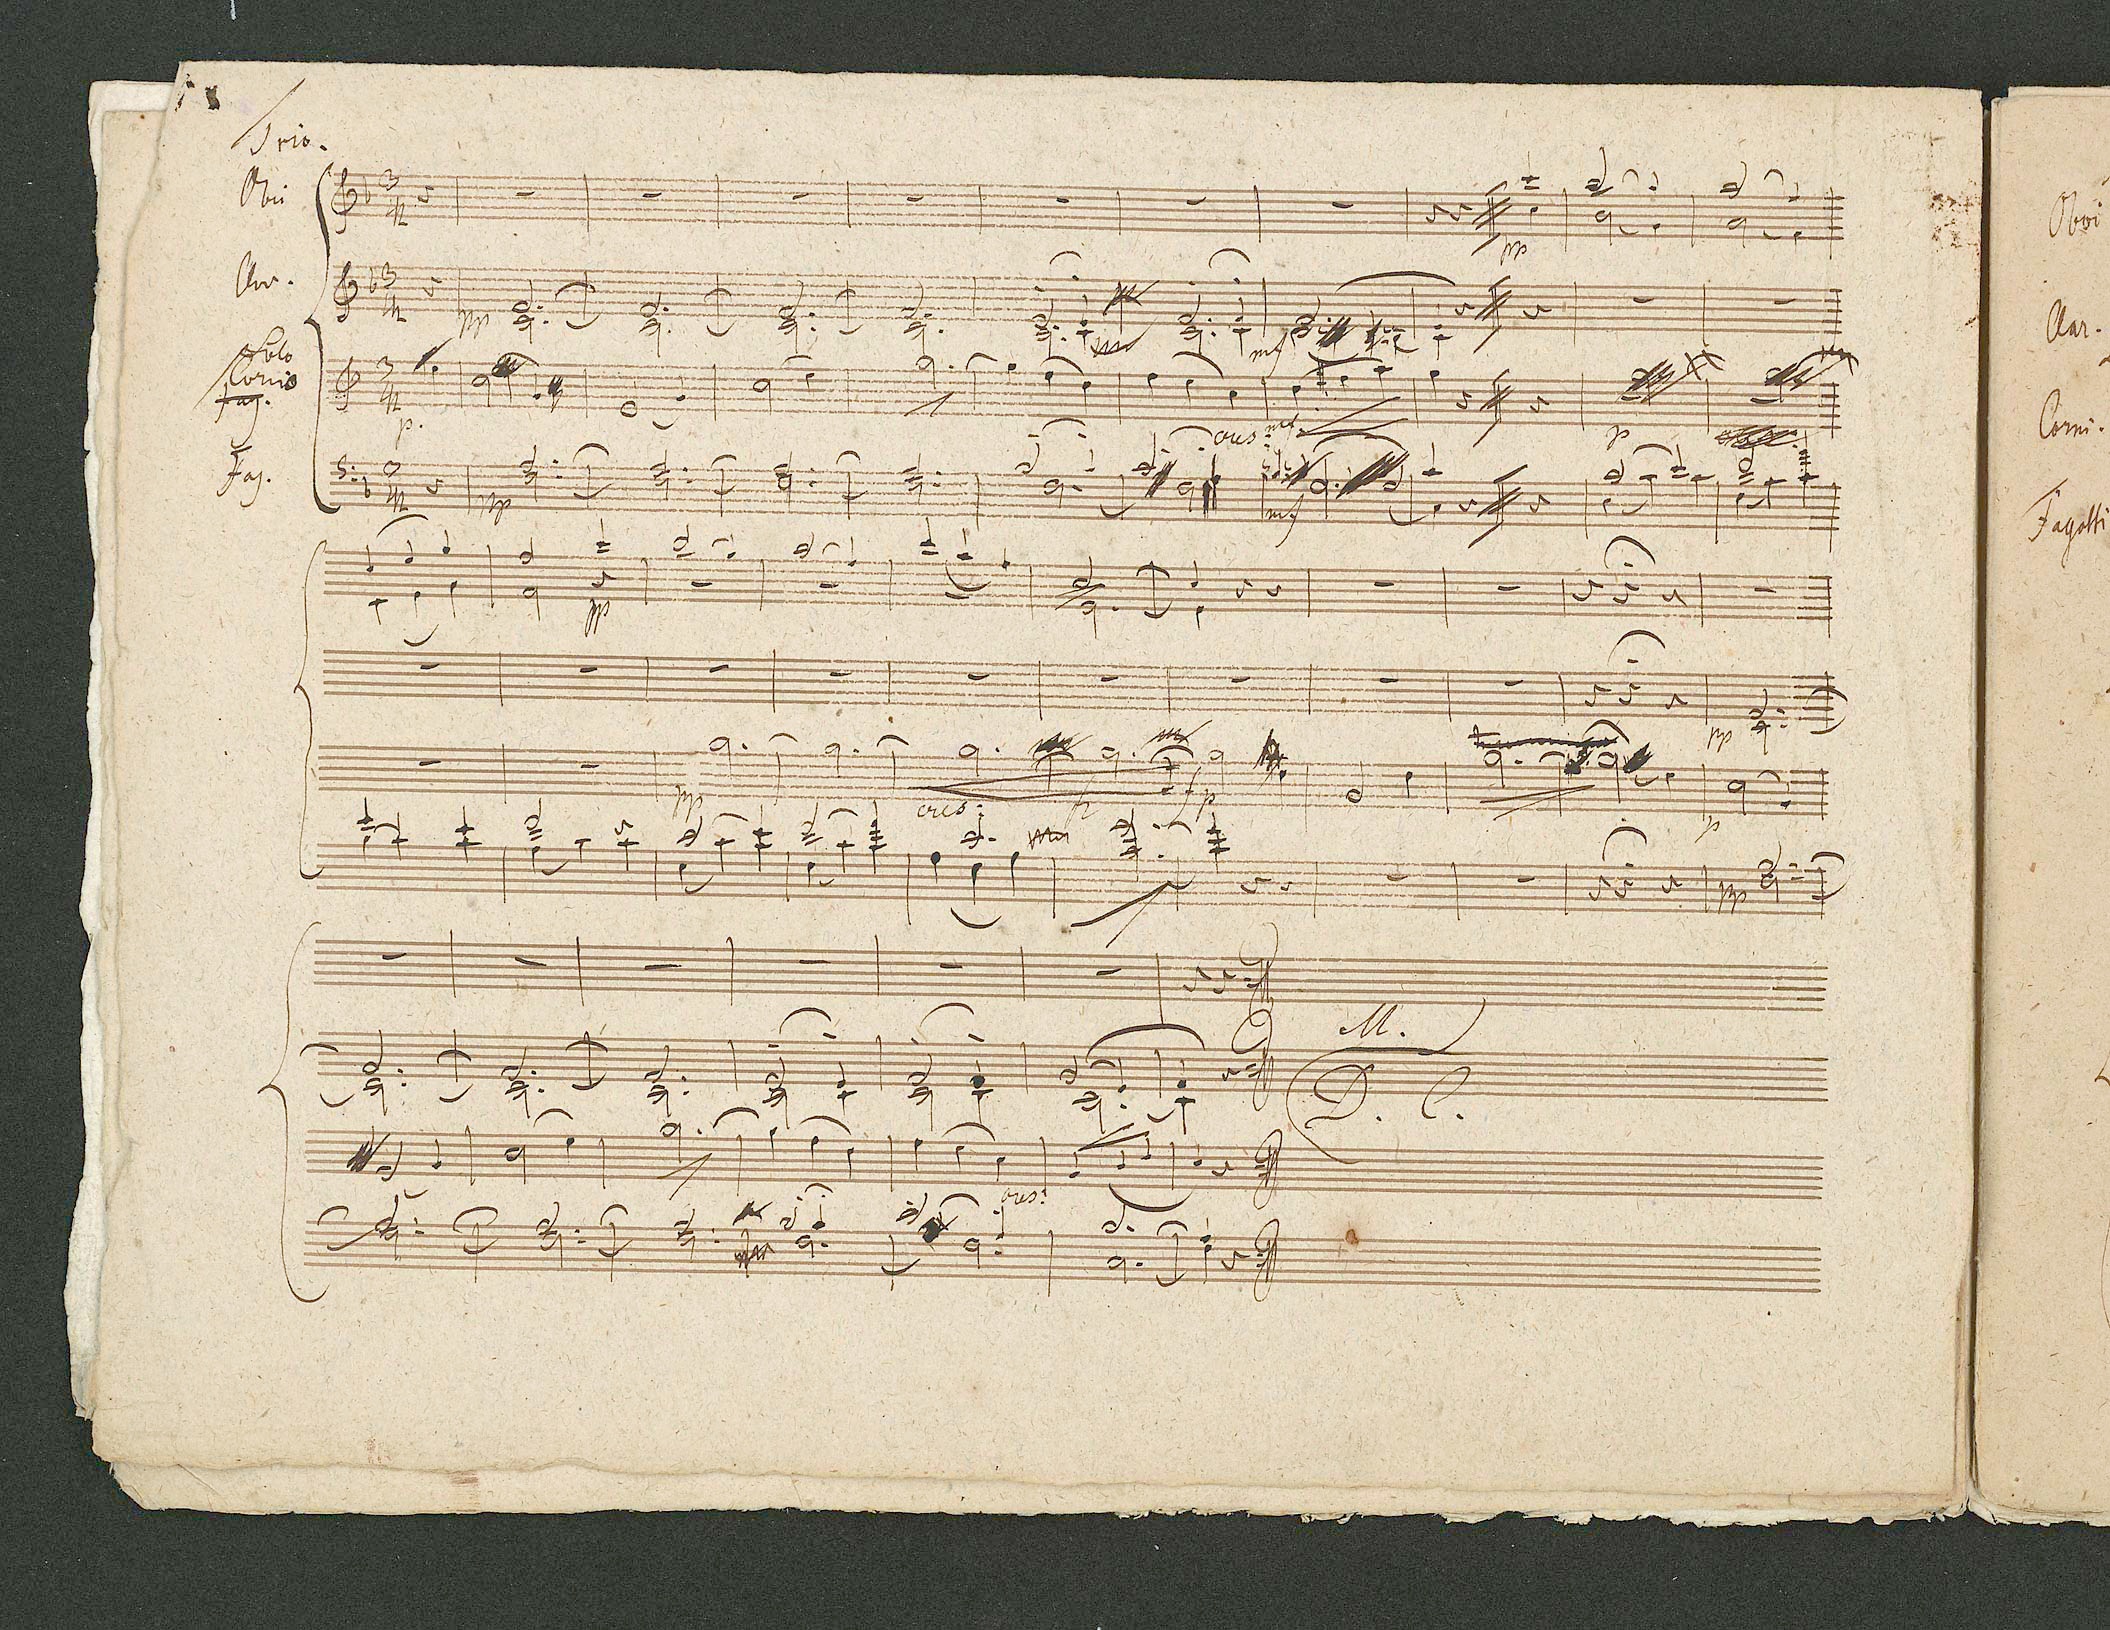 Trio.
Oboi
Clar.
Solo
Corni
Fag.
Fag.
pp
pp
mf
p.
cres:
mf
p
pp
mf
pp
pp
pp
cres:
f
p
p
pp
M.
D. C.
cres:
Oboi
Clar.
Corni.
Fagotti